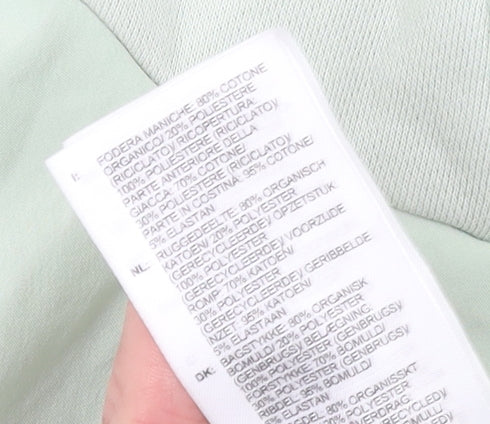 I: FODERA MANICHE: 80% COTONE
ORGANICO/ 20% POLIESTERE
(RICICLATO)/ RICOPERTURA:
100% POLIESTERE (RICICLATO)/
PARTE ANTERIORE DELLA
GIACCA: 70% COTONE/
30% POLIESTERE (RICICLATO)/
PARTE IN COSTINA: 95% COTONE/
5% ELASTAN
NL: RUGGEDEELTE: 80% ORGANISCH
KATOEN/ 20% POLYESTER
(GERECYCLEERDE)/ OPZETSTUK:
100% POLYESTER
(GERECYCLEERDE)/ VOORZIJDE
ROMP: 70% KATOEN/
30% POLYESTER
(GERECYCLEERDE)/ GERIBBELDE
INZET: 95% KATOEN/
5% ELASTAAN
DK: BAGSTYKKE: 80% ORGANISK
BOMULD/ 20% POLYESTER
(GENBRUGS)/ BELÆGNING:
100% POLYESTER (GENBRUGS)/
FORSTYKKE: 70% BOMULD/
30% POLYESTER (GENBRUGS)/
RIBDEL: 95% BOMULD/
5% ELASTAN
80% ORGANISSKT
POLYESTER